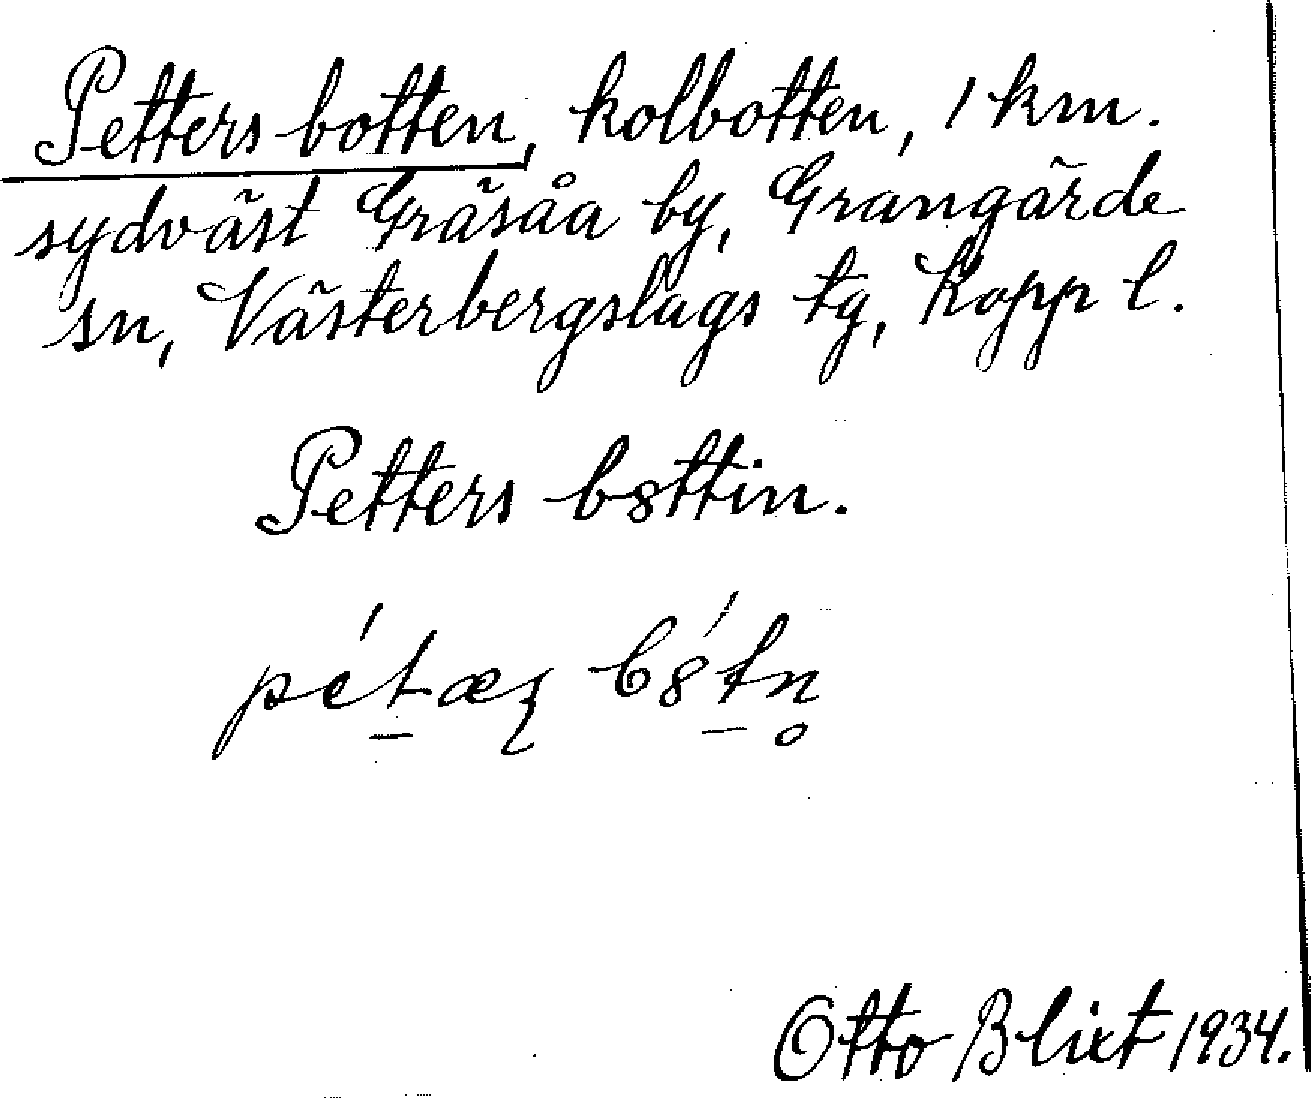 Petters botten, kolbotten, 1 km.
sydväst Gräsåa by, Grangärde
sn, Västerbergslags tg, Kopp l.
Petters b8ttin.
pétæʂ b8́tn̥
Otto Blixt 1934.